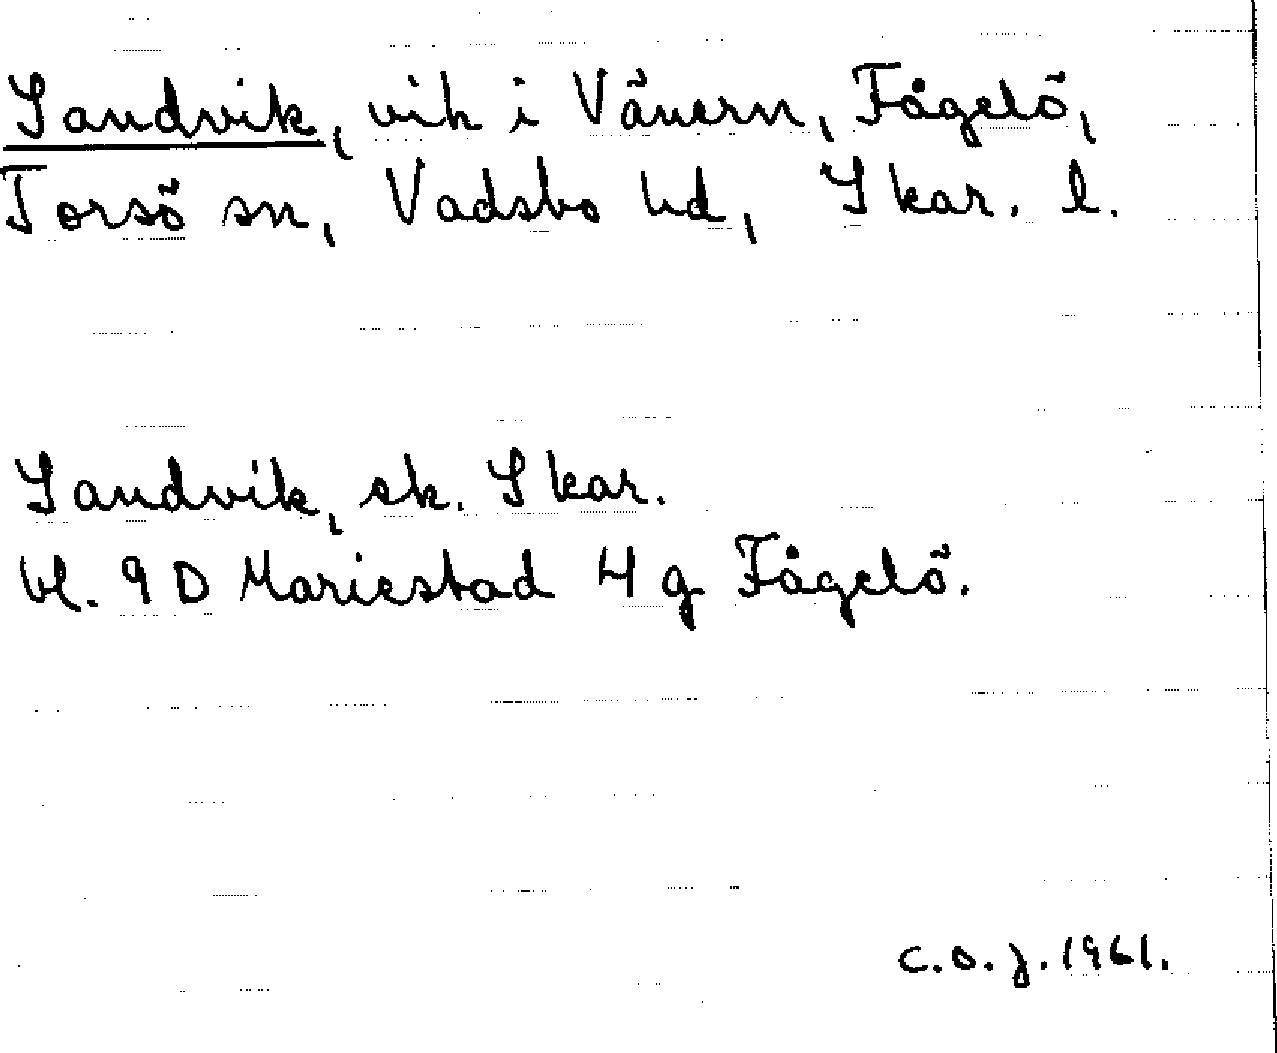 Sandvik, vik i Vänern, Fågelö,
Torsö sn, Vadsbo hd, Skar. l.
Sandvik, ek. Skar.
bl. 9 D Mariestad 4 g Fågelö.
C.O.J. 1961.